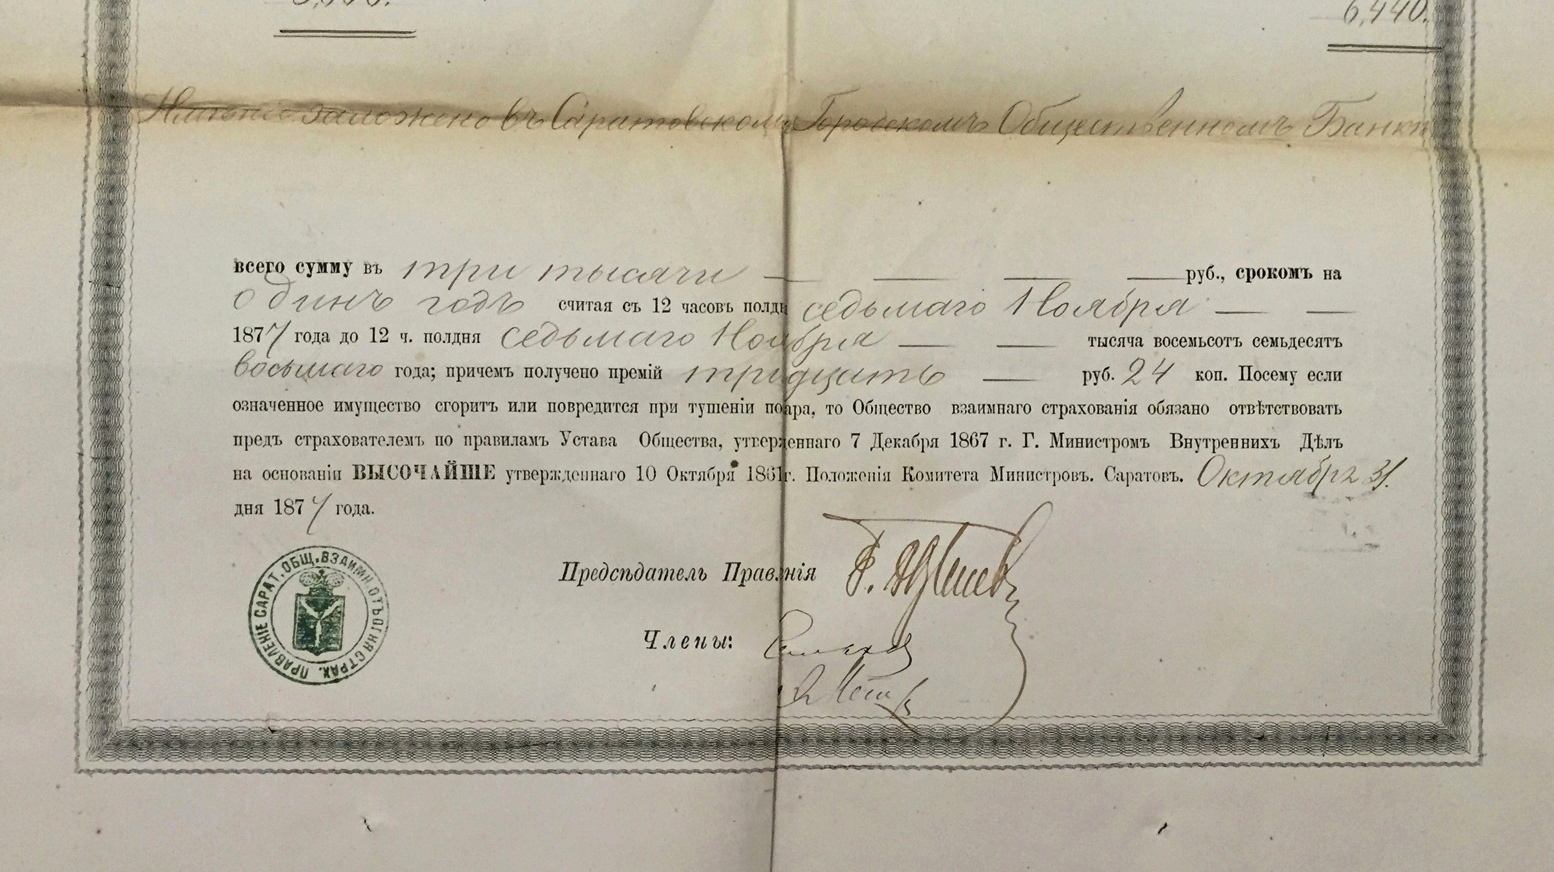 6,440.
Имѣніе заложено въ Саратовскомъ Городскомъ Общественномъ Банкѣ
всего сумму въ три тысячи руб., срокомъ на
одинъ годъ считая съ 12 часовъ полдн седьмаго Ноября
1877 года до 12 ч. полдня седьмаго Ноября тысяча восемьсотъ семьдесятъ
восьмаго года; причемъ получено премій тридцать руб. 24 коп. Посему если
означенное имущество сгоритъ или повредится при тушеніи пожара, то Общество взаимнаго страхованія обязано отвѣтствовать
предъ страхователемъ по правиламъ Устава Общества, утвержденнаго 7 Декабря 1867 г. Г. Министромъ Внутреннихъ Дѣлъ
на основаніи ВЫСОЧАЙШЕ утвержденнаго 10 Октября 1861 г. Положенія Комитета Министровъ. Саратовъ. Октября 31.
дня 1877 года.
ПРАВЛЕНІЕ САРАТ. ОБЩ. ВЗАИМН. ОТЪ ОГНЯ СТРАХ.
Предсѣдатель Правленія
Члены: